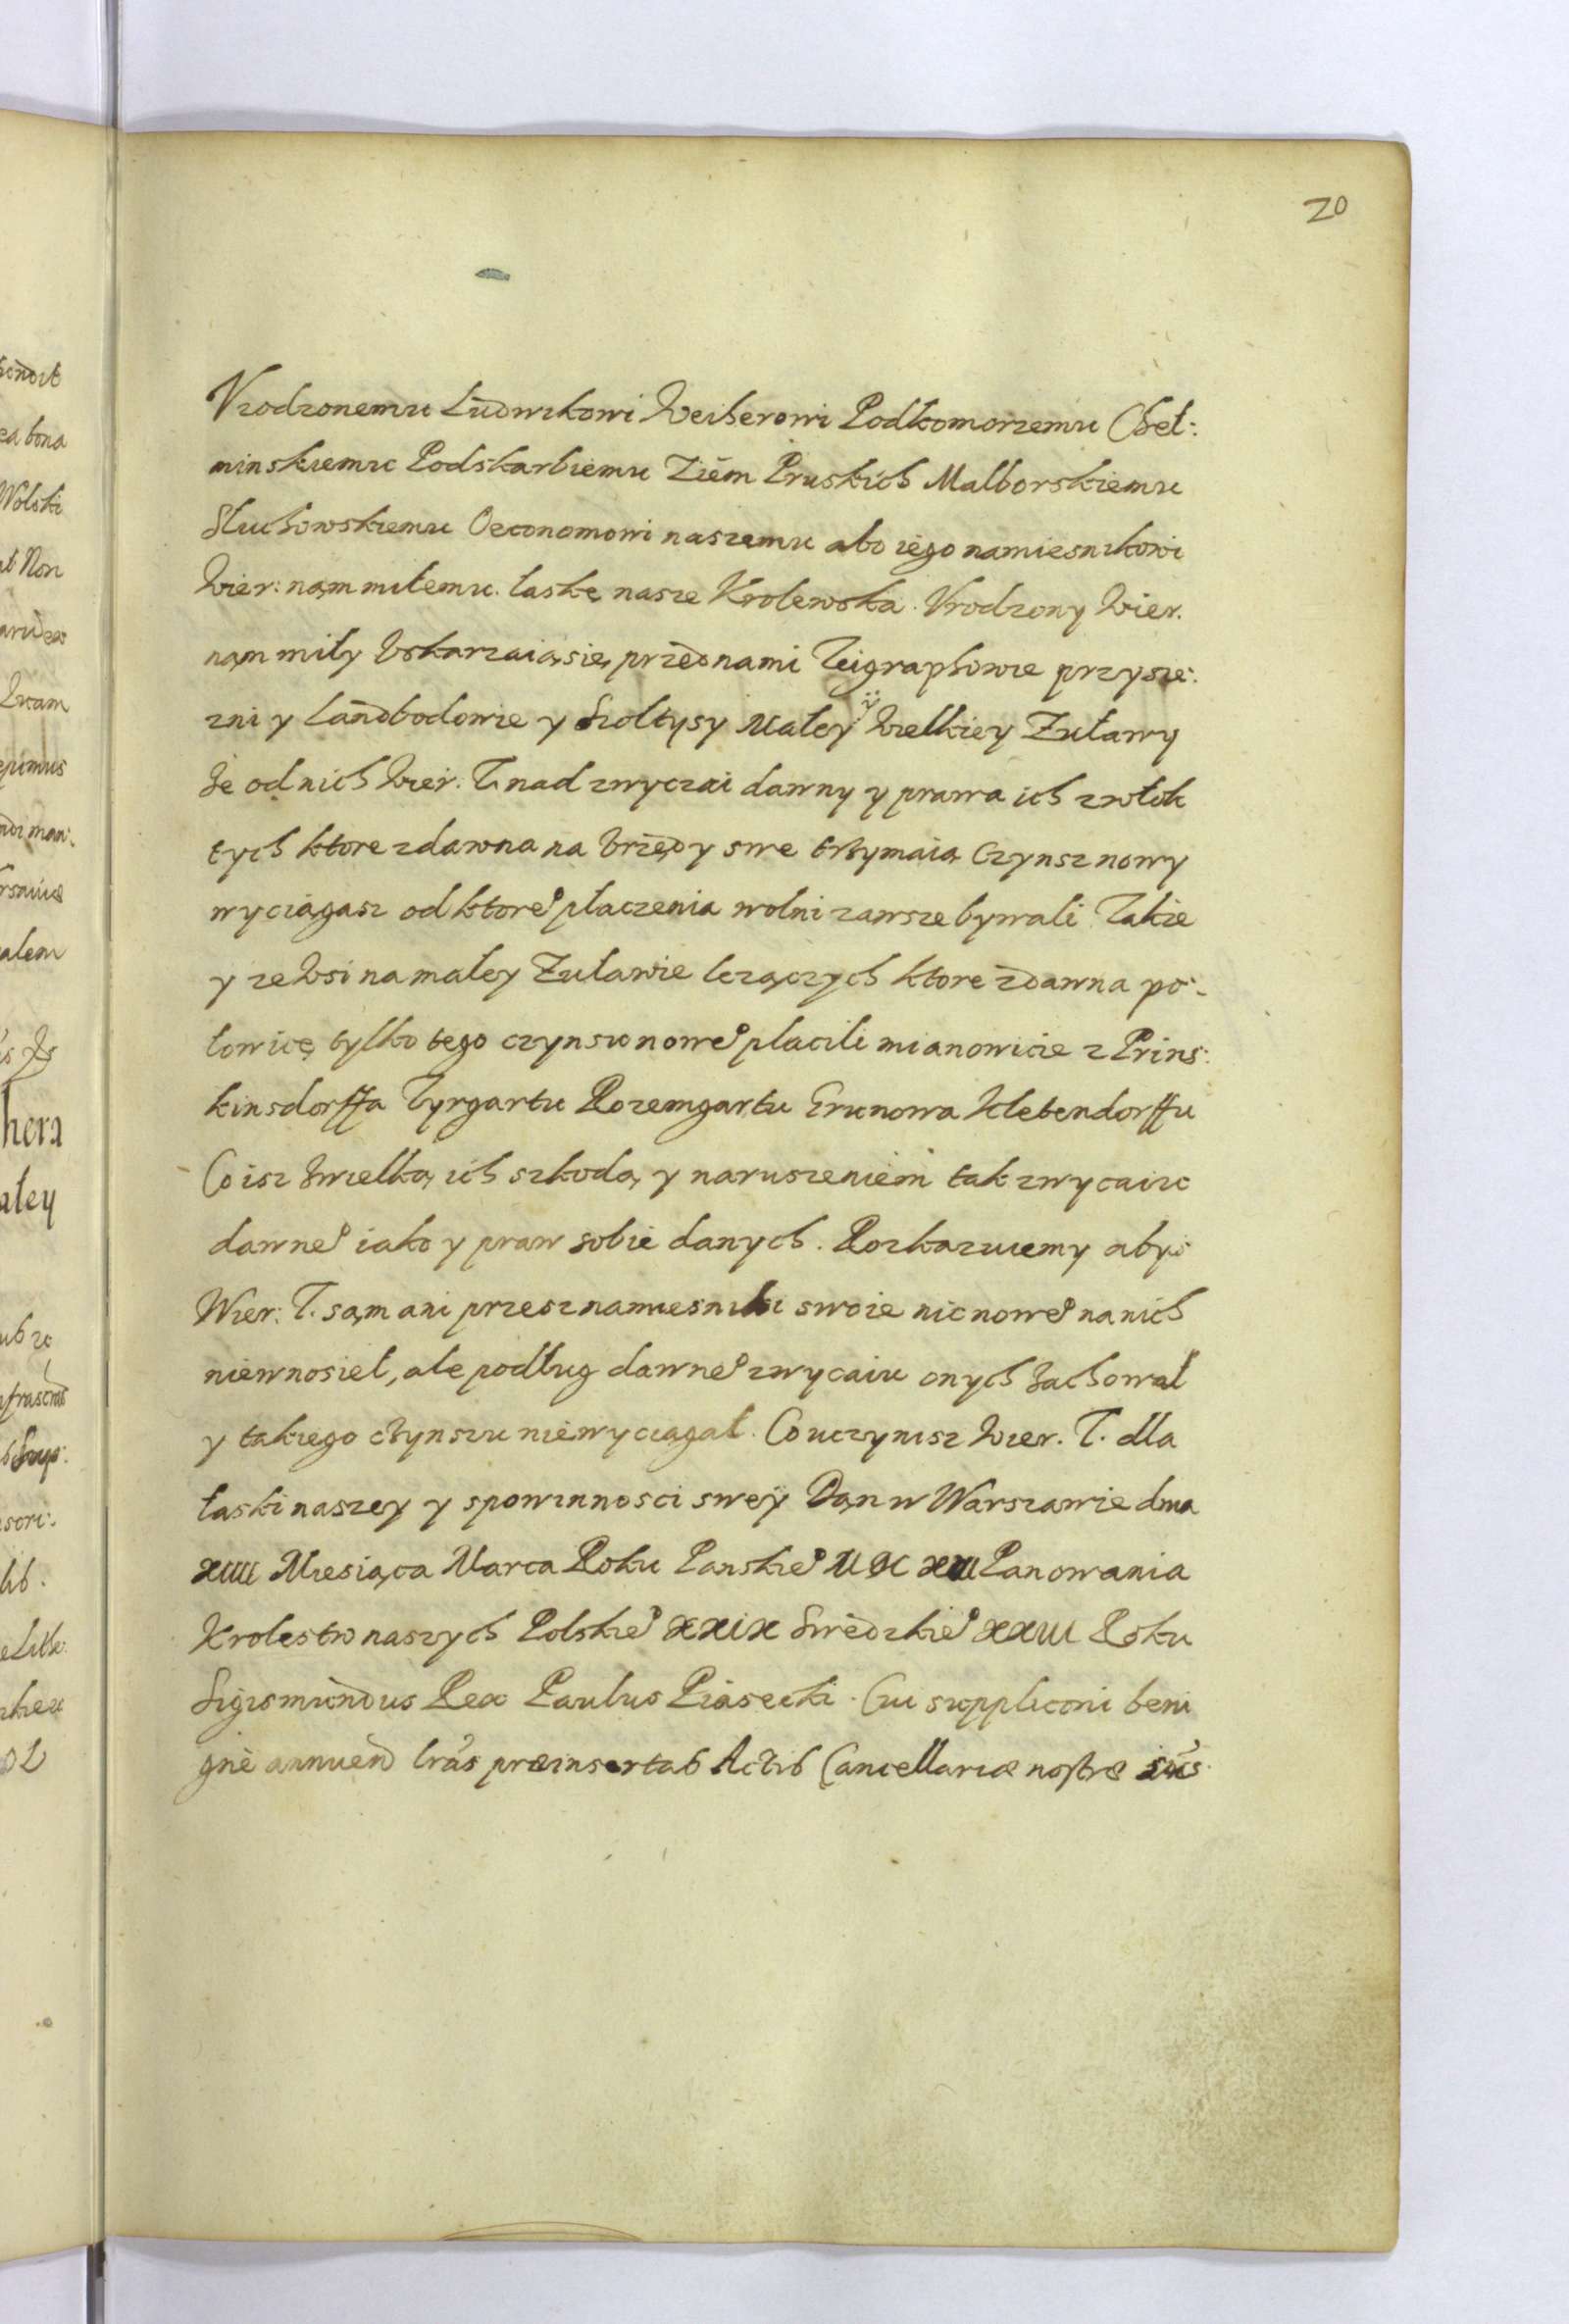 20
Vrodzonemu Ludwikowi Weiherowi Podkomorzemu Cheł:
minskiemu Podskarbiemu Ziem Pruskich Malborskiemu
Sluchowskiemu Oeconomowi naszemu abo iego namiesnikowi
Wier: nąm miłemu. łaskę nasze Krolewska. Vrodzony Wier.
nąm miły Vskarzaią się przed nami Teigraphowie przysię:
zni y Landbodowie y Szoltysy Małey y Wielkiey Zuławy
że od nich Wier. T. nad zwyczai dawny y prawa ich z włok
tych ktore zdawna na Vrzędy swe trzymaią Czynsz nowy
wyciągasz od ktore° płaczenia wolni zawsze bywali Takze
y ze Wsi na małey Zuławie lezączych ktore zdawna po:
łowicę tylko tego czynszu nowe° placili mianowicie z Prins:
kinsdorffa Tyrgartu Rozemgartu Grunowa Kletendorffu
Co isz zwielką ich szkodą y naruszeniem tak zwycaiu
dawne° iako y praw sobie danych. Rozkazuiemy abys
Wier: T. sąm ani przesz namiesniki swoie nic nowe° na nich
niewnosieł, ale podług dawne° zwycaiu onych zachował
y takiego czynszu niewyciagał. Co uczynisz Wier. T. dla
łaski naszey y spowinnosci swey Dąn w Warszawie dnia
xiiii Miesiąca Marca Roku Panskie° Panowania
Krolestw naszych Polskie° xxix Swedzkie° xxiii Roku
Sigismundus Rex Paulus Piasecki. Cui suppliconi beni
gnè annuen lras præinsertas Actis Cancellariæ nostræ